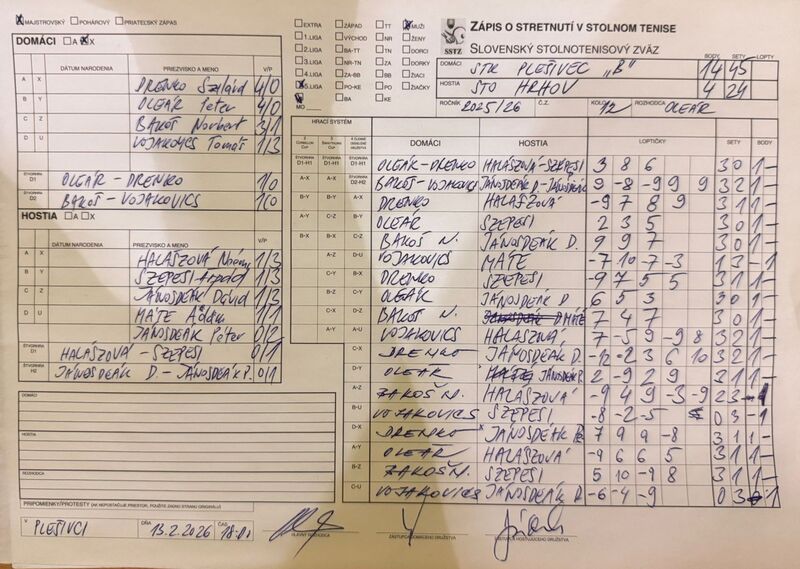 MAJSTROVSKÝ POHÁROVÝ PRIATEĽSKÝ ZÁPAS
EXTRA ZÁPAD TT MUŽI
1.LIGA VÝCHOD NR ŽENY
2.LIGA BA-TT TN DORCI
3.LIGA NR-TN ZA DORKY
4.LIGA ZA-BB BB ŽIACI
5.LIGA PO-KE PO ŽIAČKY
MO BA KE
SSTZ
ZÁPIS O STRETNUTÍ V STOLNOM TENISE
SLOVENSKÝ STOLNOTENISOVÝ ZVÄZ
BODY SETY LOPTY
DOMÁCI STK PLEŠIVEC "B" 14 45
HOSTIA STO HRHOV 4 24
ROČNÍK 2025/26 Č.Z. KOLO 12 ROZHODCA OLEÁR
DOMÁCI A X
DÁTUM NARODENIA PRIEZVISKO A MENO V/P
A X DRENKO Szilárd 4/0
B Y OLEÁR Péter 4/0
C Z BAKOŠ Norbert 3/1
D U VOJAKOVICS Tomáš 1/3
ŠTVORHRA D1 OLEÁR - DRENKO 1/0
ŠTVORHRA D2 BAKOŠ - VOJAKOVICS 1/0
HOSTIA A X
DÁTUM NARODENIA PRIEZVISKO A MENO V/P
A X HALÁSZOVÁ 1/3
B Y SZEPESI Arpád 1/3
C Z JÁNOSDEÁK Dávid 1/3
D U MÁTE Ádám 1/1
JÁNOSDEÁK Péter 0/2
ŠTVORHRA D1 HALÁSZOVÁ - SZEPESI 0/1
ŠTVORHRA H2 JÁNOSDEÁK D. - JÁNOSDEÁK P. 0/1
DOMÁCI
HOSTIA
ROZHODCA
PRIPOMIENKY/PROTESTY
V PLEŠIVCI DŇA 13.2.2026 ČAS 18:00
HRACÍ SYSTÉM
DOMÁCI HOSTIA LOPTIČKY SETY BODY
D1-H1 D1-H1 D1-H1 OLEÁR-DRENKO HALÁSZOVÁ-SZEPESI 3 8 6 3 0 1 -
A-X A-X D2-H2 BAKOŠ-VOJAKOVICS JÁNOSDEÁK D.-JÁNOSDEÁK 9 -8 -9 9 9 3 2 1 -
B-Y B-Y A-X DRENKO HALÁSZOVÁ -9 7 8 9 3 1 1 -
A-Y C-Z B-Y OLEÁR SZEPESI 2 3 5 3 0 1 -
B-X B-X C-Z BAKOŠ N. JÁNOSDEÁK D. 9 9 7 3 0 1 -
A-Z D-U VOJAKOVICS MÁTE -7 10 -7 -3 1 3 - 1
C-Y B-X DRENKO SZEPESI -9 7 5 5 3 1 1 -
B-Z C-Y OLEÁR JÁNOSDEÁK D 6 5 3 3 0 1 -
C-X D-Z BAKOŠ N. MÁTE 7 4 7 3 0 1 -
A-Y A-U VOJAKOVICS HALÁSZOVÁ 7 -5 9 -9 8 3 2 1 -
C-X DRENKO JÁNOSDEÁK D. -12 -2 3 6 10 3 2 1 -
D-Y OLEÁR JÁNOSDEÁK P. 2 -9 2 9 3 1 1 -
A-Z BAKOŠ N. HALÁSZOVÁ -9 4 9 -3 -9 2 3 - 1
B-U VOJAKOVICS SZEPESI -8 -2 -5 0 3 - 1
D-X DRENKO JÁNOSDEÁK 7 9 9 -8 3 1 1 -
A-Y OLEÁR HALÁSZOVÁ -9 6 6 5 3 1 1 -
B-Z BAKOŠ N. SZEPESI 5 10 -9 8 3 1 1 -
C-U VOJAKOVICS JÁNOSDEÁK D -6 -4 -9 0 3 - 1
HLAVNÝ ROZHODCA ZÁSTUPCA DOMÁCEHO DRUŽSTVA ZÁSTUPCA HOSŤUJÚCEHO DRUŽSTVA